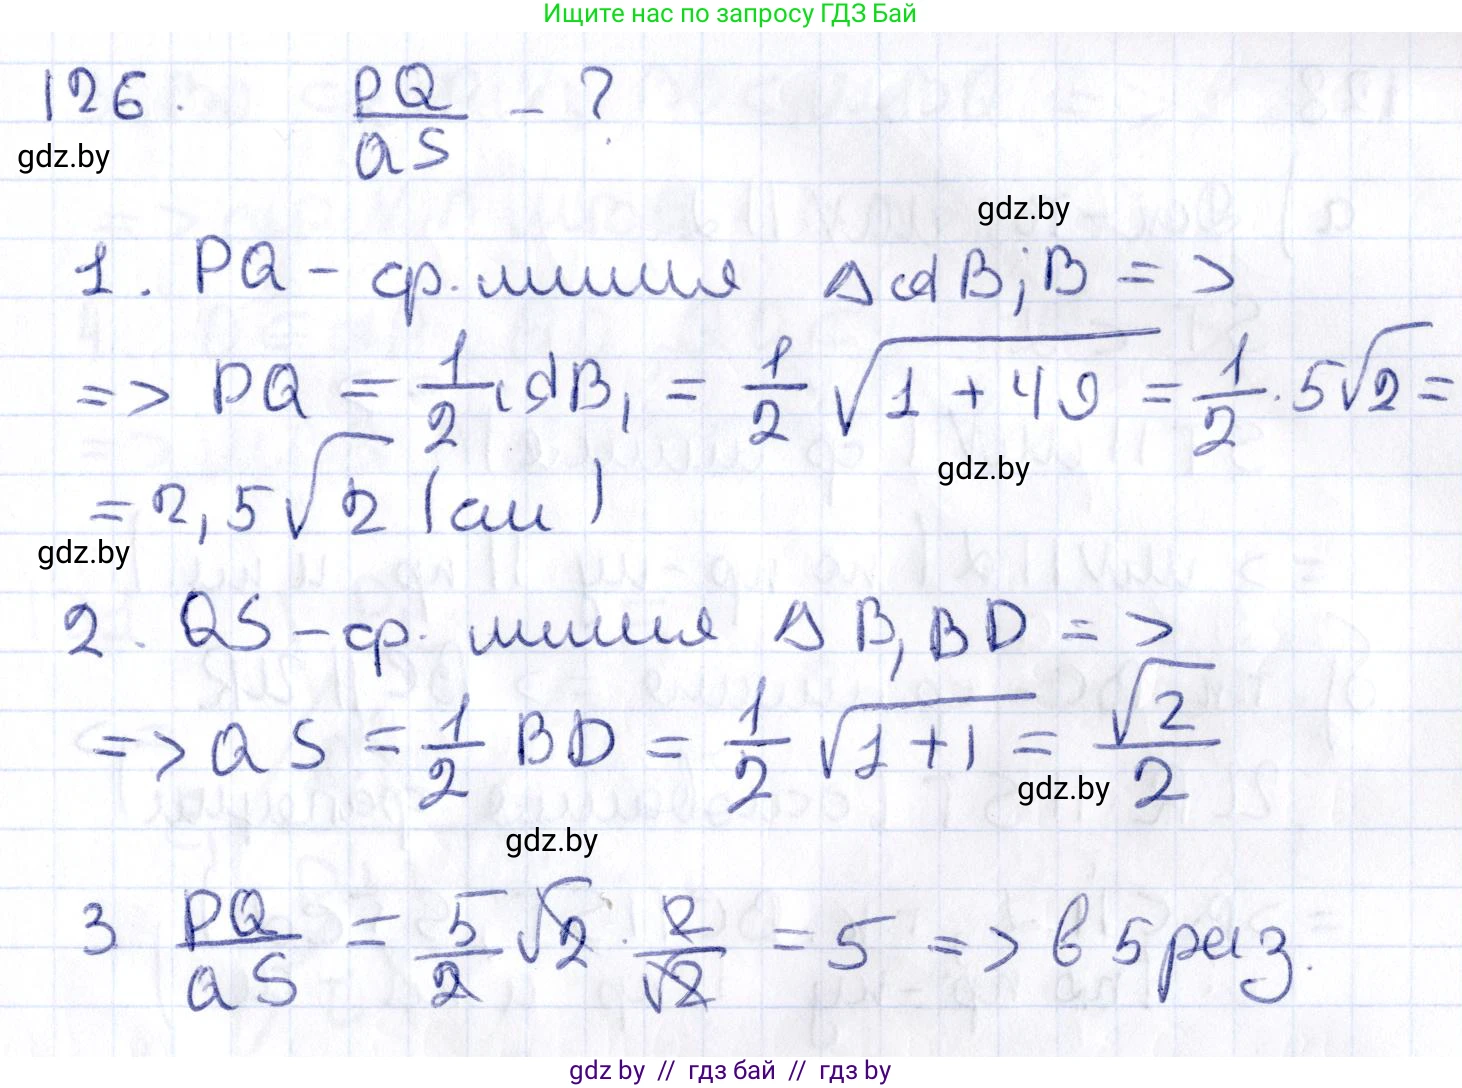 Ищите нас по запросу ГДЗ Бай
126. PQ/QS - ?
gdz.by
gdz.by
1. PQ - ср. линия Δ AB₁B =>
=> PQ = 1/2 AB₁ = 1/2 √(1 + 49) = 1/2 · 5√2 =
gdz.by
= 2,5√2 (см)
gdz.by
2. QS - ср. линия Δ B₁BD =>
=> QS = 1/2 BD = 1/2 √(1+1) = √2/2
gdz.by
gdz.by
3 PQ/QS = 5/2 √2 · 2/√2 = 5 => в 5 раз.
gdz.by // гдз бай // гдз by